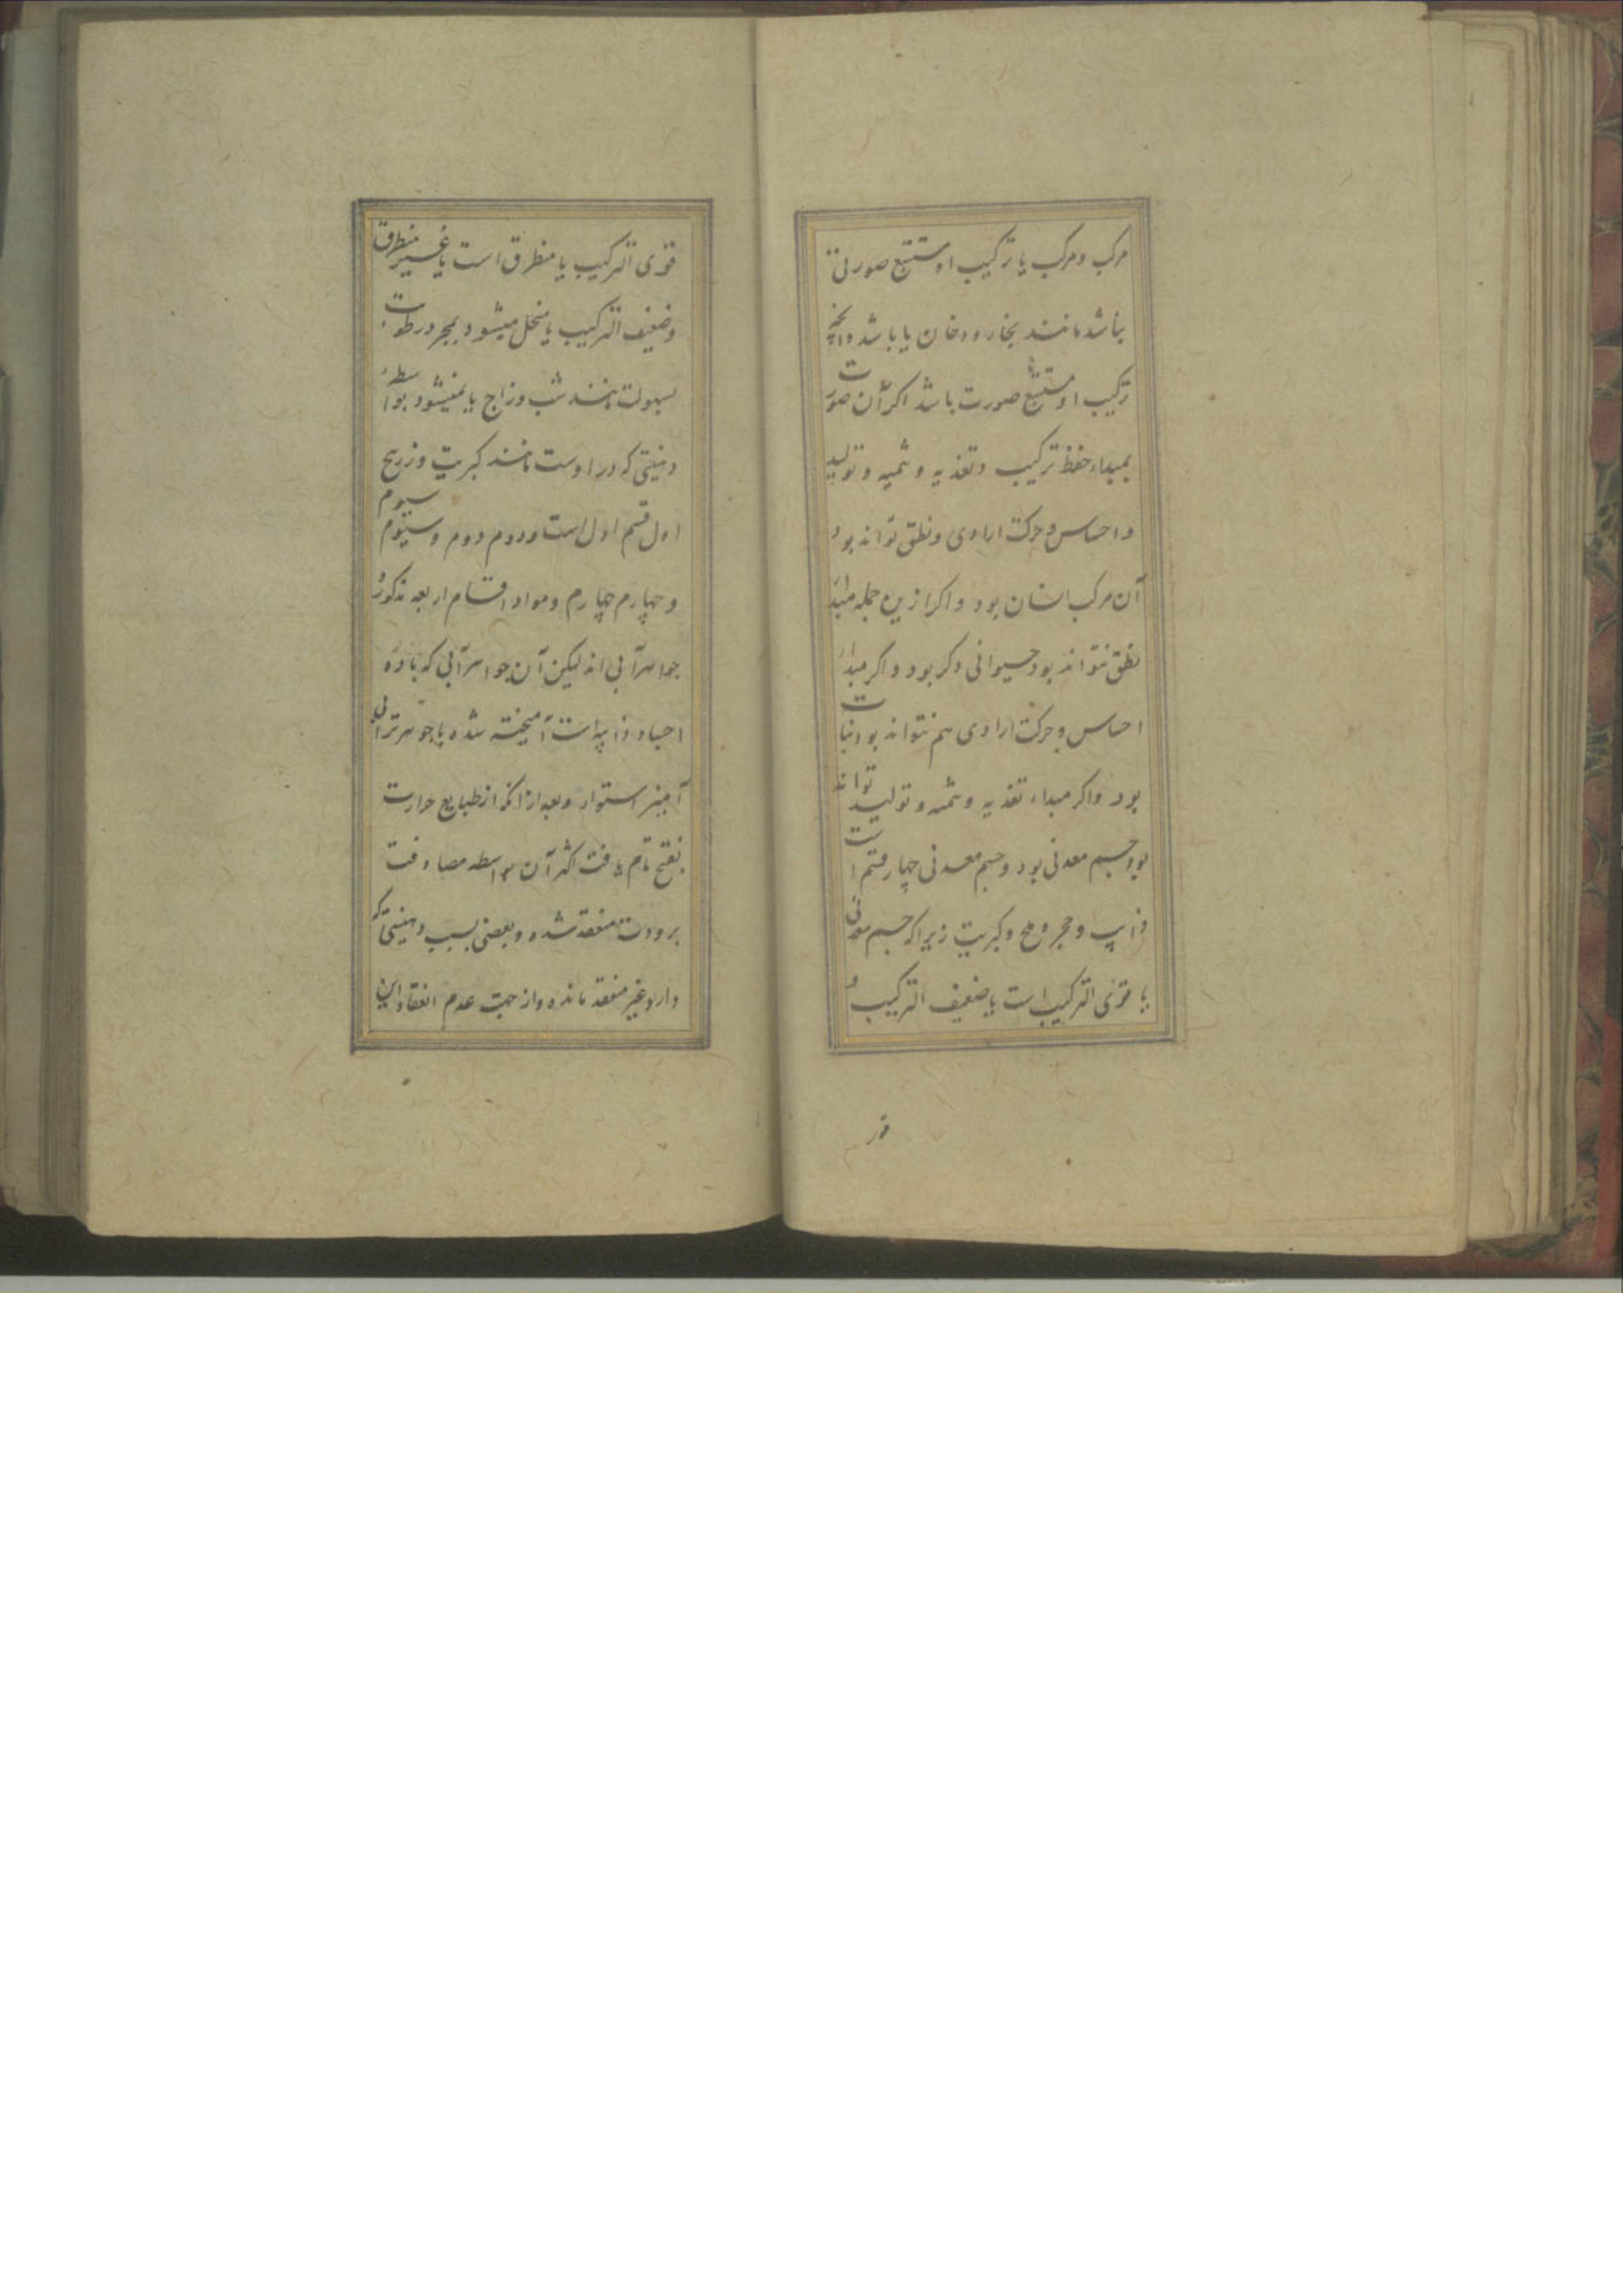 مرکب و مرکب یا ترکیب او مستتبع صورتی
نباشد مانند بخار و دخان یا باشد و آنچه
ترکیب او مستتبع صورت باشد اگر آن صورت
بمبداء حفظ ترکیب و تغذیه و تنمیه و تولید
و احساس و حرکت ارادی و نطق تواند بود
آن مرکب انسان بود و اگر ازین جمله مبداء
نطق نتواند بود حیوانی دکر بود و اگر مبداء
احساس و حرکت ارادی هم نتواند بود نبات
بود و اگر مبداء تغذیه و تنمیه و تولید تواند
بود جسم معدنی بود و جسم معدنی چهار قسم است
ذایب و حجر و ملح و کبریت زیرا که جسم معدنی
یا قوی الترکیب است یا ضعیف الترکیب و
قوی الترکیب یا منطرق است یا غیر منطرق
و ضعیف الترکیب یا منحل میشود بمجرد رطوبت
بسهولت مانند شب و زاج یا نمیشود بواسطه
دهنیتی که در اوست مانند کبریت و زرنیخ
اول قسم اول است و دوم دوم و سیوم سیوم
و چهارم چهارم و مواد اقسام اربعه مذکور
جواهر آبی اند لیکن آن جواهر آبی که ماده
اجساد ذایبه است آمیخته شده با جوهر ترابی
آمیزش استوار و بعد از آنکه از طبایع حرارت
نضج تام یافت اکثر آن بواسطه مصادفت
برودت منعقد شده و بعضی بسبب دهنیتی که
دارد غیر منعقد مانده و از جهت عدم انعقاد این